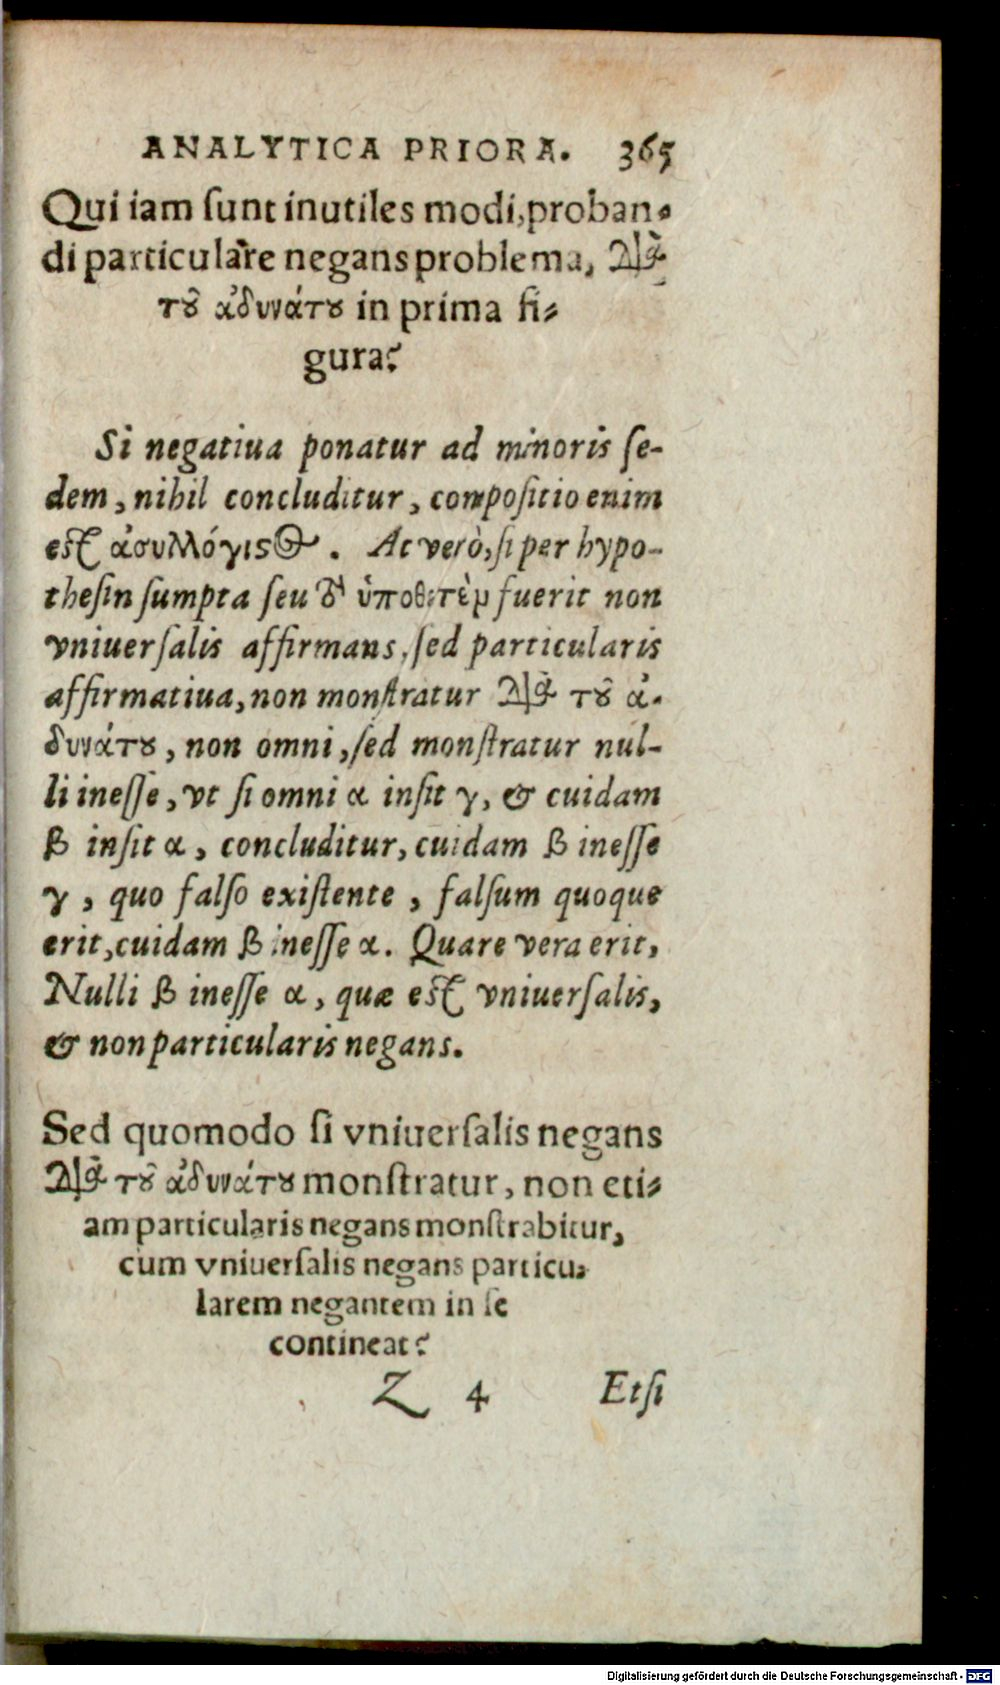 ANALYTICA PRIORA. 365
Qui iam ſunt inutiles modi, proban-
di particulare negans problema, διὰ
τοῦ ἀδυνάτου in prima fi-
gura?
Si negatiua ponatur ad minoris ſe-
dem, nihil concluditur, compoſitio enim
eſt ἀσυλλόγιστος. At verò, ſi per hypo-
theſin ſumpta ſeu ὑποθετὲμ fuerit non
vniuerſalis affirmans, ſed particularis
affirmatiua, non monſtratur διὰ τοῦ ἀ-
δυνάτου, non omni, ſed monſtratur nul-
li ineſſe, vt ſi omni α inſit γ, & cuidam
β inſit α, concluditur, cuidam β ineſſe
γ, quo falſo exiſtente, falſum quoque
erit, cuidam β ineſſe α. Quare vera erit,
Nulli β ineſſe α, quæ eſt vniuerſalis,
& non particularis negans.
Sed quomodo ſi vniuerſalis negans
διὰ τοῦ ἀδυνάτου monſtratur, non eti-
am particularis negans monſtrabitur,
cum vniuerſalis negans particu-
larem negantem in ſe
contineat?
Z 4 Etſi
Digitalisierung gefördert durch die Deutsche Forschungsgemeinschaft - DFG